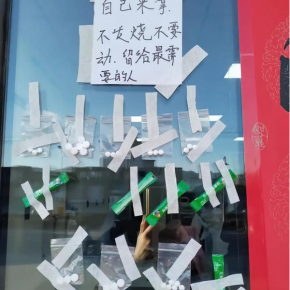 自己来拿.
不发烧不要
动.留给最需
要的人